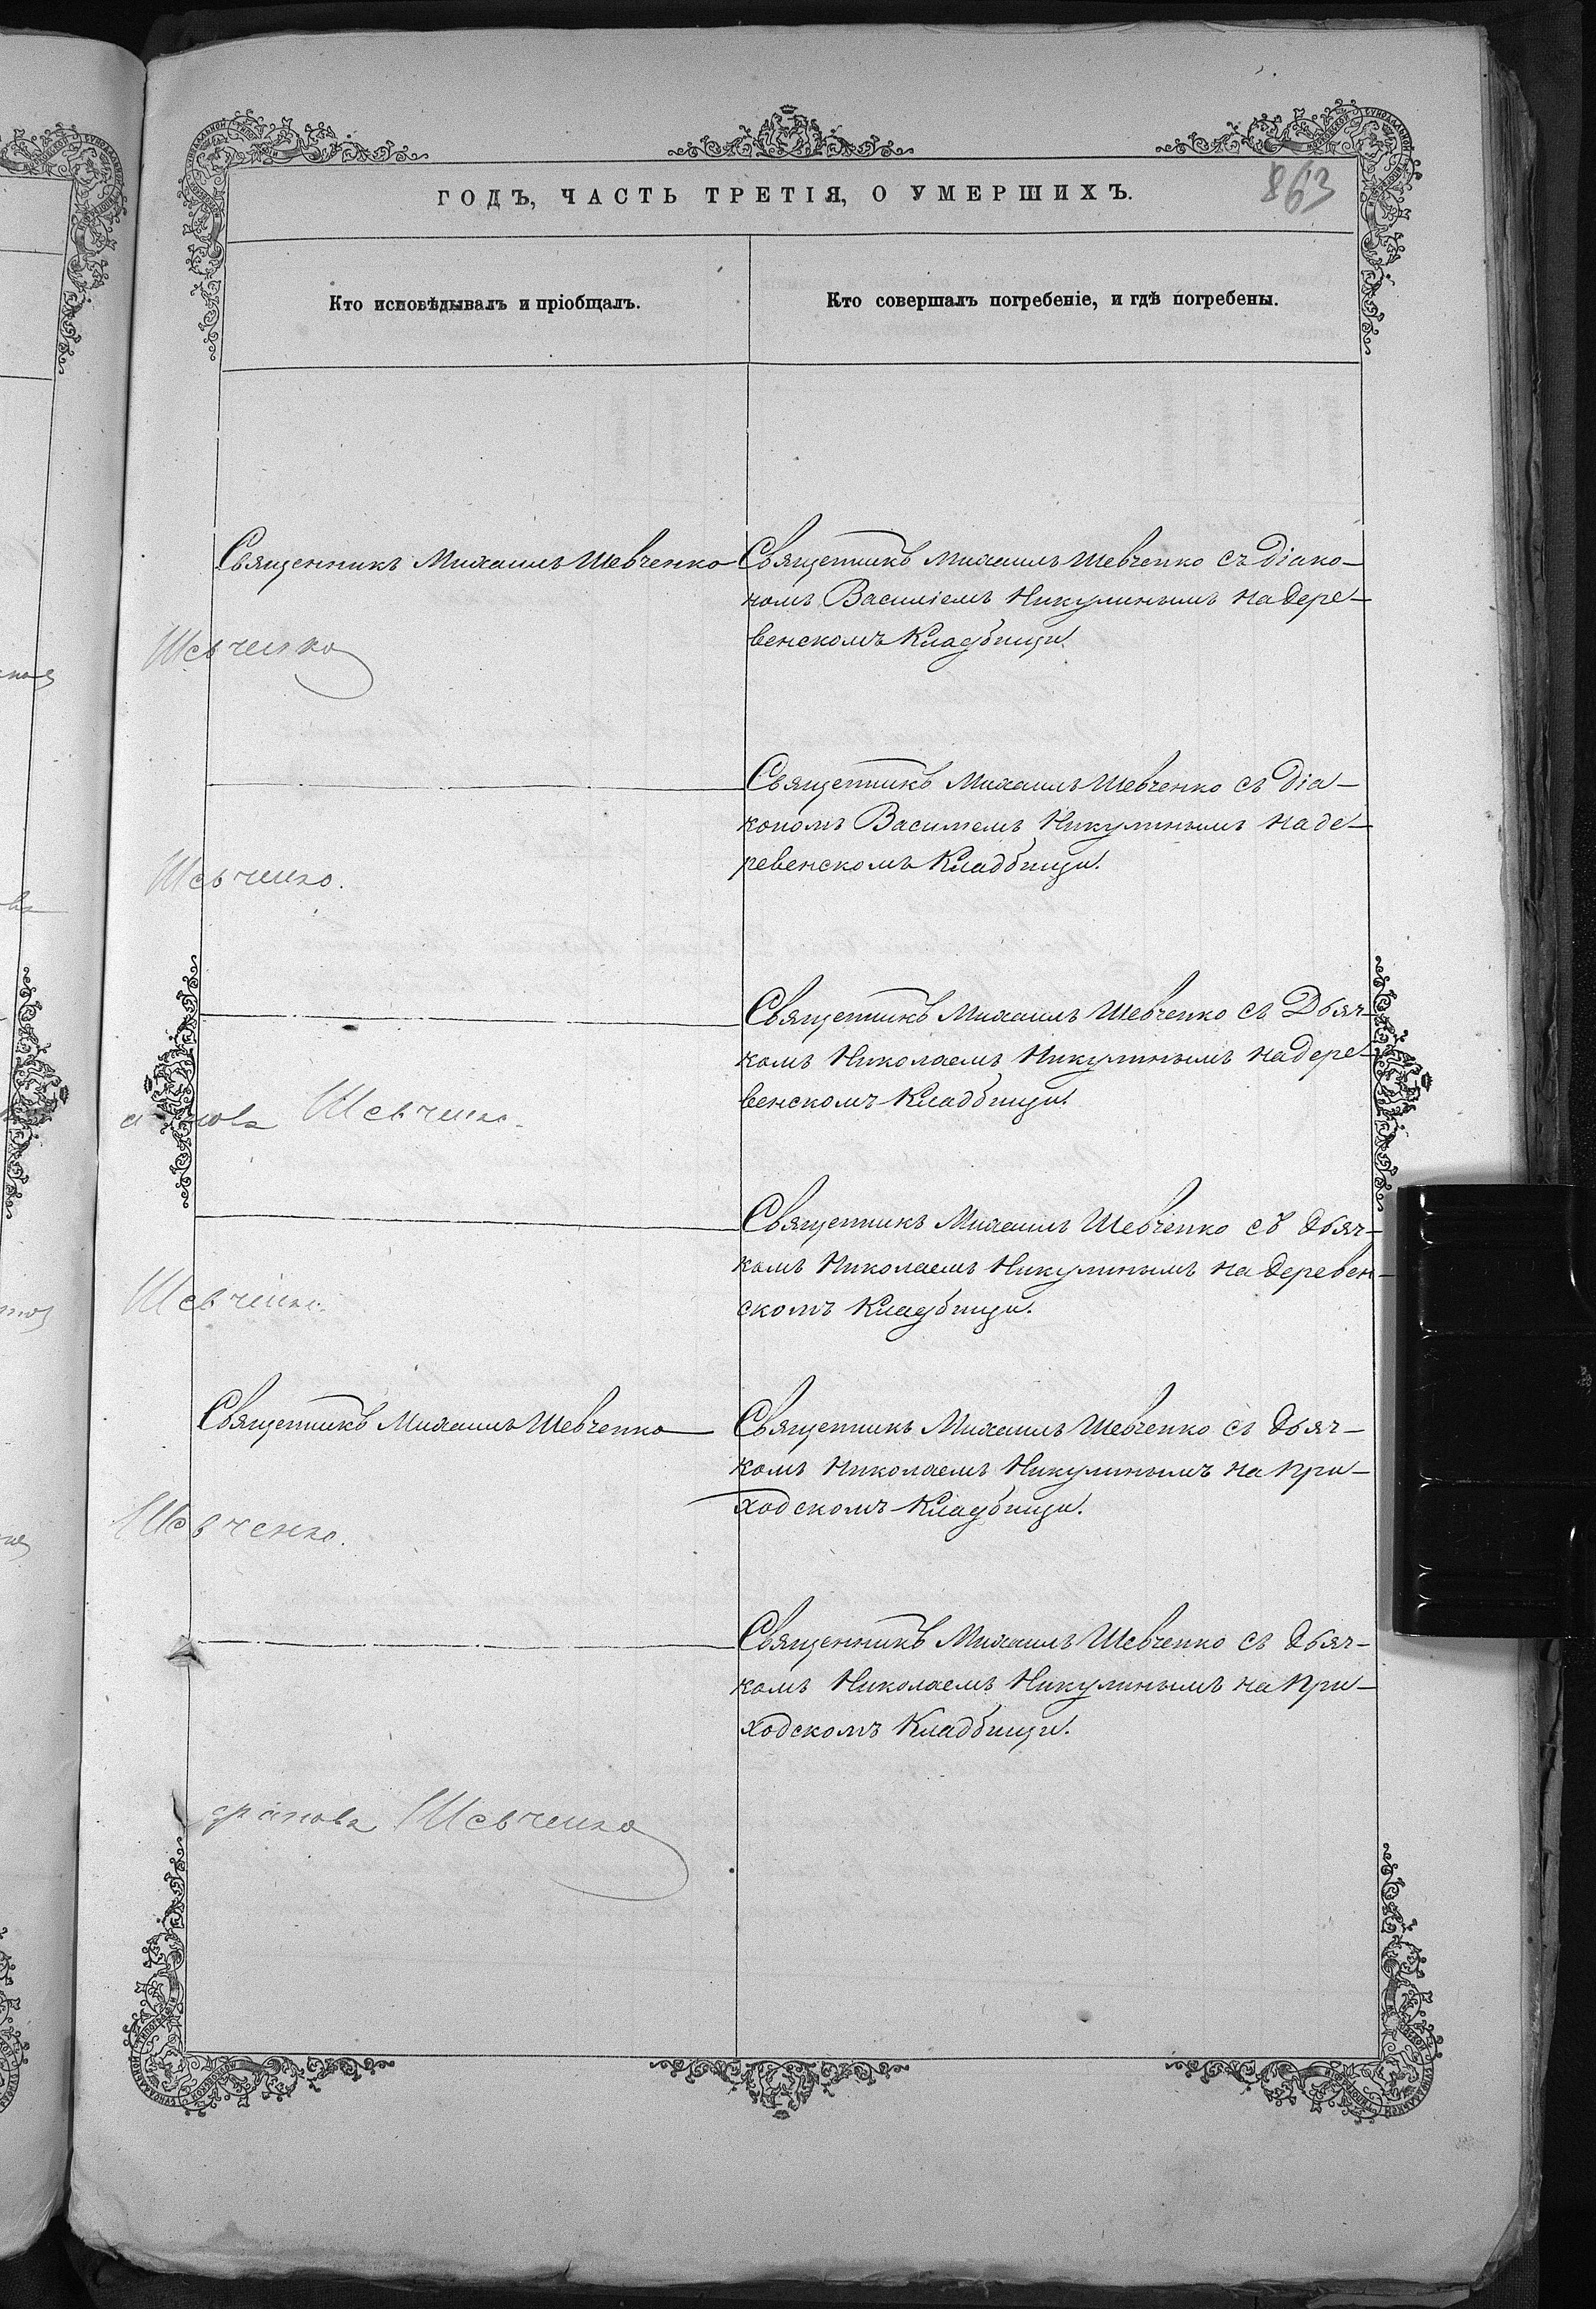 863
ГОДЪ, ЧАСТЬ ТРЕТІЯ, О УМЕРШИХЪ.
Кто исповѣдывалъ и пріобщалъ.
Кто совершалъ погребеніе, и гдѣ погребены.
Священникъ Михаилъ Шевченко
Священникъ Михаилъ Шевченко съ Діако-
номъ Василіемъ Никулинымъ на дере-
венскомъ Кладбищи.
Шевченко
Священникъ Михаилъ Шевченко съ Діа-
кономъ Василіемъ Никулинымъ на де-
ревенскомъ Кладбищи.
Шевченко.
Священникъ Михаилъ Шевченко съ Дьяч-
комъ Николаемъ Никулинымъ на дере-
венскомъ Кладбищи.
Шевченко.
Священникъ Михаилъ Шевченко съ дьяч-
комъ Николаемъ Никулинымъ на деревен-
скомъ Кладбищи.
Шевченко.
Священникъ Михаилъ Шевченко
Священникъ Михаилъ Шевченко съ дьяч-
комъ Николаемъ Никулинымъ на при-
ходскомъ Кладбищи.
Шевченко.
Священникъ Михаилъ Шевченко съ дьяч-
комъ Николаемъ Никулинымъ на при-
ходскомъ Кладбищи.
Шевченко